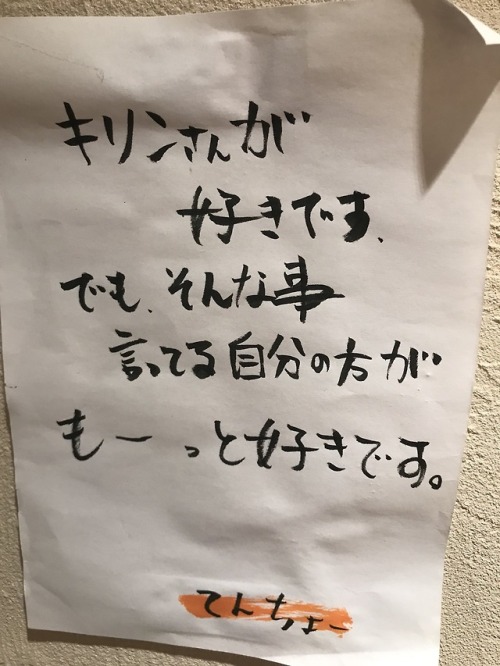 キリンさんが
好きです、
でも、そんな事
言ってる自分の方が
もーっと好きです。
てんちょー